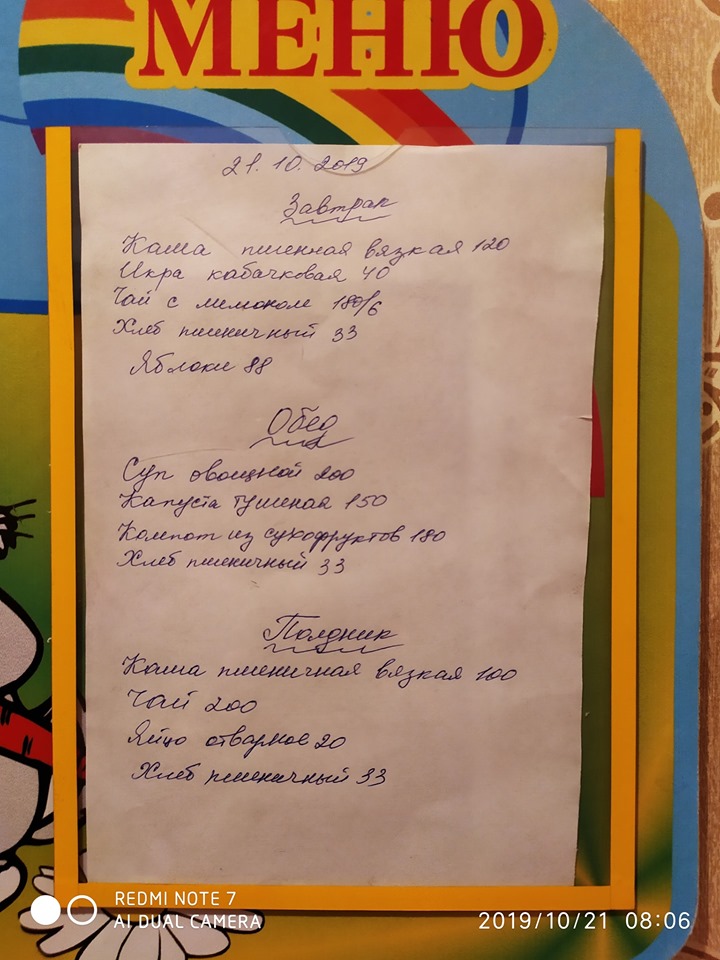 МЕНЮ
21.10.2019
Завтрак
Каша пшенная вязкая 120
Икра кабачковая 40
Чай с лимоном 180/6
Хлеб пшеничный 33
Яблоки 88
Обед
Суп овощной 200
Капуста тушеная 150
Компот из сухофруктов 180
Хлеб пшеничный 33
Полдник
Каша пшеничная вязкая 100
Чай 200
Яйцо отварное 20
Хлеб пшеничный 33
REDMI NOTE 7
AI DUAL CAMERA
2019/10/21 08:06